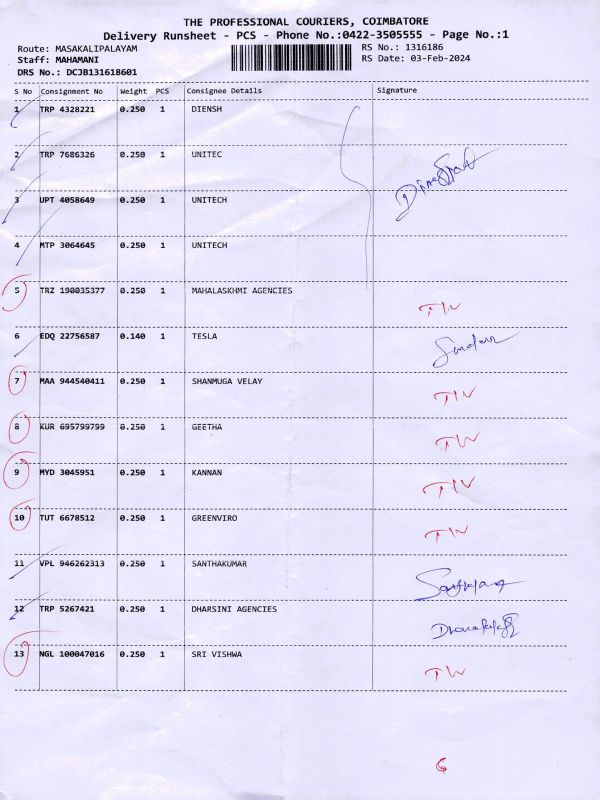 THE PROFESSIONAL COURIERS, COIMBATORE
Delivery Runsheet - PCS - Phone No.:0422-3505555 - Page No.:1
Route: MASAKALIPALAYAM RS No.: 1316186
Staff: MAHAMANI RS Date: 03-Feb-2024
DRS No.: DCJB131618601
S No Consignment No Weight PCS Consignee Details Signature
1 TRP 4328221 0.250 1 DIENSH
2 TRP 7686326 0.250 1 UNITEC
3 UPT 4058649 0.250 1 UNITECH
4 MTP 3064645 0.250 1 UNITECH
5 TRZ 190035377 0.250 1 MAHALASKHMI AGENCIES
6 EDQ 22756587 0.140 1 TESLA
7 MAA 944540411 0.250 1 SHANMUGA VELAY
8 KUR 695799799 0.250 1 GEETHA
9 MYD 3045951 0.250 1 KANNAN
10 TUT 6678512 0.250 1 GREENVIRO
11 VPL 946262313 0.250 1 SANTHAKUMAR
12 TRP 5267421 0.250 1 DHARSINI AGENCIES
13 NGL 100047016 0.250 1 SRI VISHWA